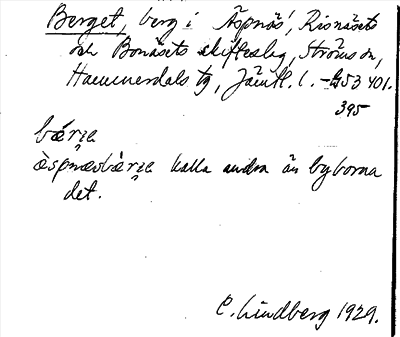 Berget, berg i Äspnäs', Risnäsets
och Bonäsets skifteslag, Ströms sn,
Hammerdals tg, Jämtl. l. - 53 401.
395
bǽrʒa
æ̀spnæsbǽrʒa kalla andra än byborna
det.
C. Lindberg 1929.